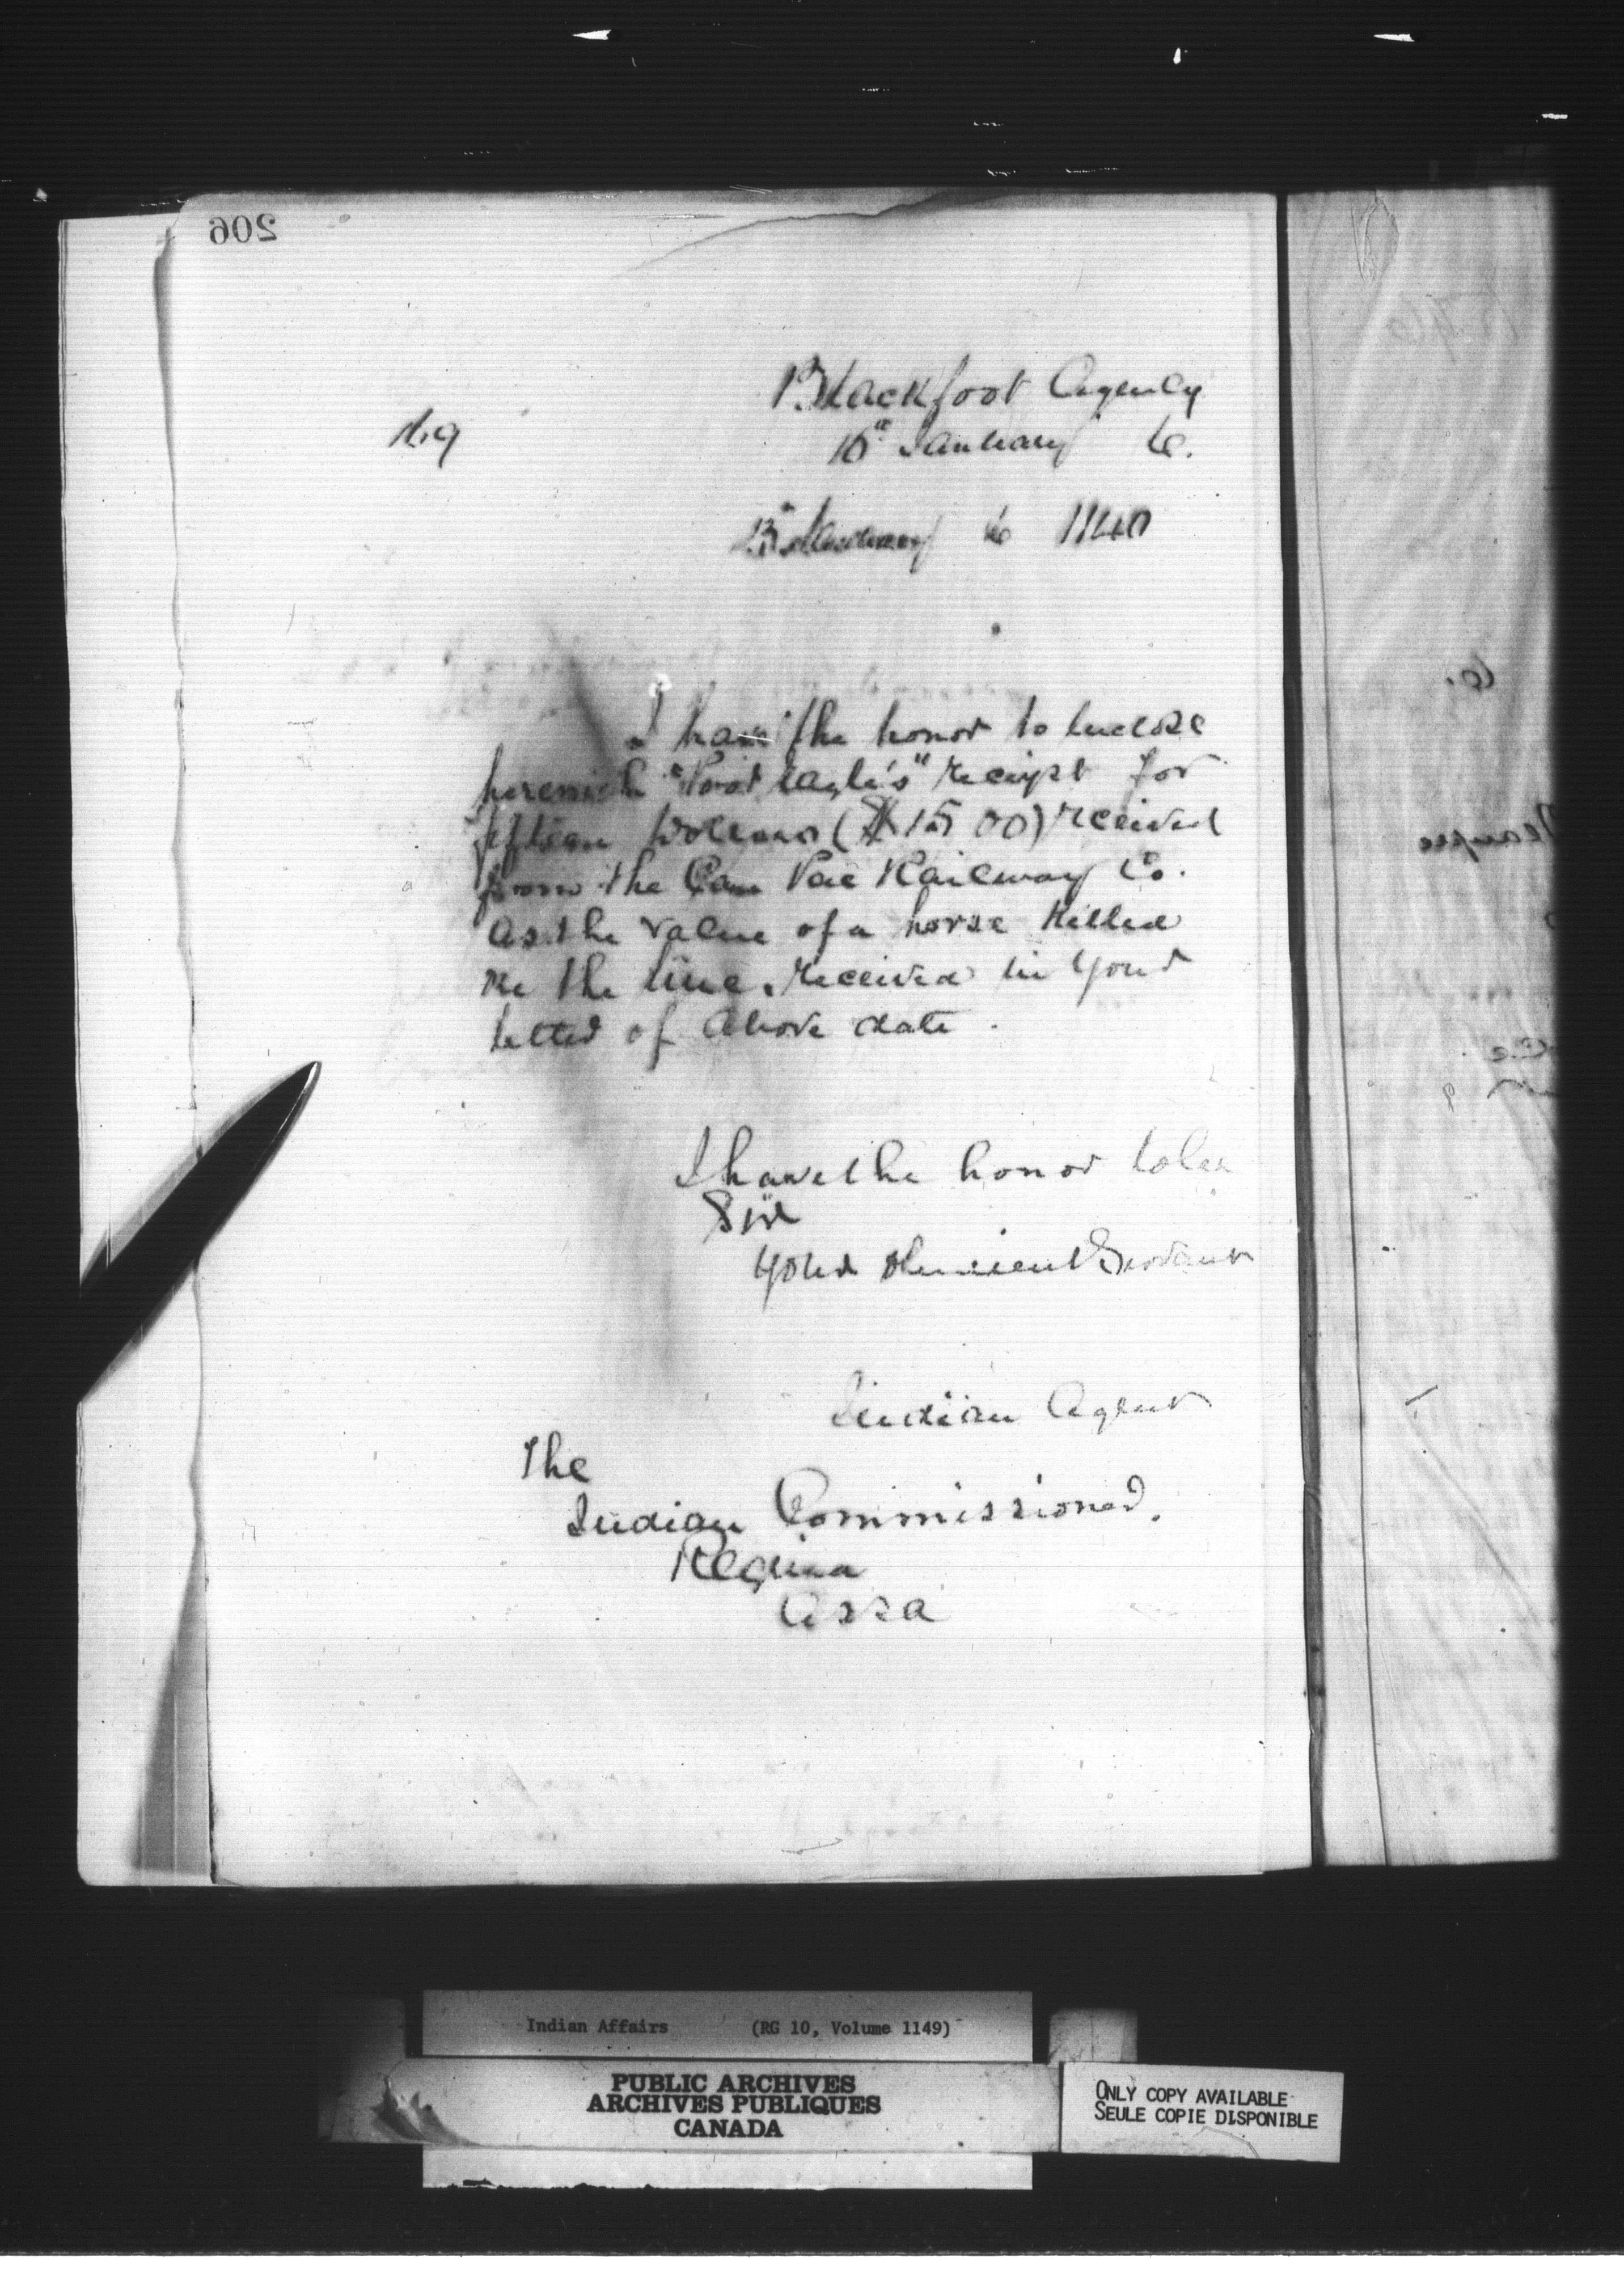 206
Blackfoot Agency
169
16" January 6.
13" January 6 1140
I have the honor to inclose
herewith " Eagle's" receipt for
fifteen Dollars ($15 00) received
from the Can Pac Railway Co.
as the value of a horse killed
on the line. received in your
letter of above date.
I have the honor to be
Sir
Your obedient Servant
Indian Agent
The
Indian Commissioner.
Regina
Assa
Indian Affairs (RG 10, Volume 1149)
PUBLIC ARCHIVES
ARCHIVES PUBLIQUES
CANADA
ONLY COPY AVAILABLE
SEULE COPIE DISPONIBLE